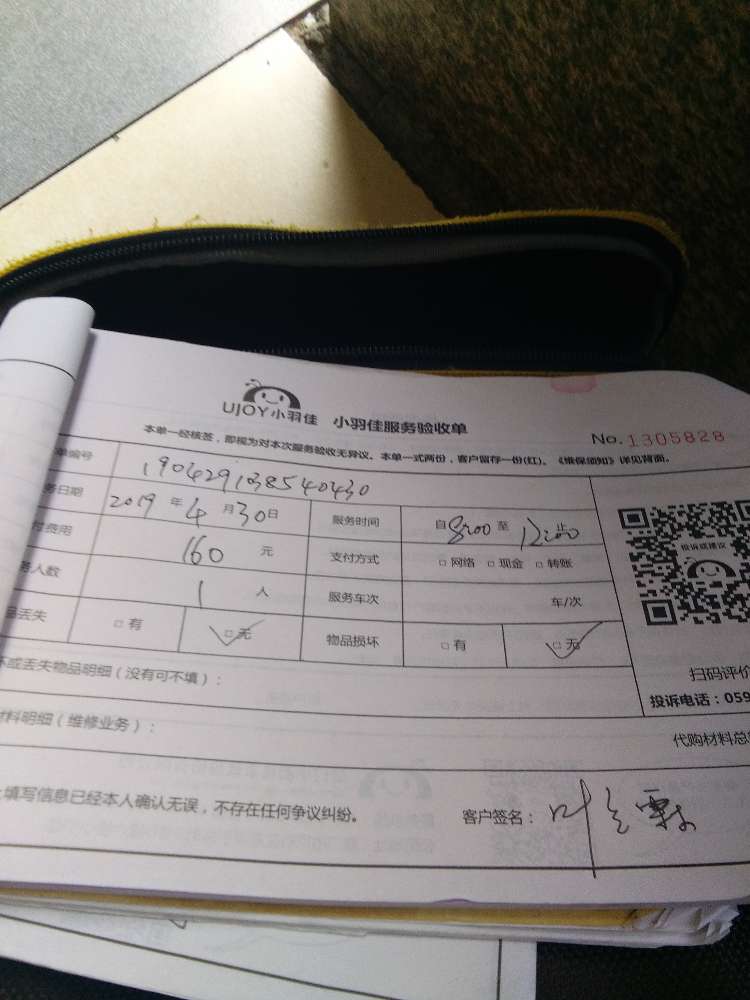 UJOY小羽佳 小羽佳服务验收单
No.1305828
本单一经核签，即视为对本次服务验收无异议。本单一式两份，客户留存一份(红)。《维保须知》详见背面。
单编号 1904291038540430
务日期 2019 年 4 月 30 日 服务时间 自 8:00 至 12:00 止
付费用 160 元 支付方式 □ 网络 □ 现金 □ 转账
务人数 1 人 服务车次 车/次
品丢失 □ 有 □ 无 物品损坏 □ 有 □ 无
投诉或建议
扫码评价
投诉电话：059
坏或丢失物品明细（没有可不填）：
材料明细（维修业务）：
代购材料总
上填写信息已经本人确认无误，不存在任何争议纠纷。 客户签名：叶